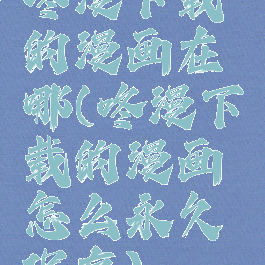 咚漫下载
的漫画在
哪(咚漫下
载的漫画
怎么永久